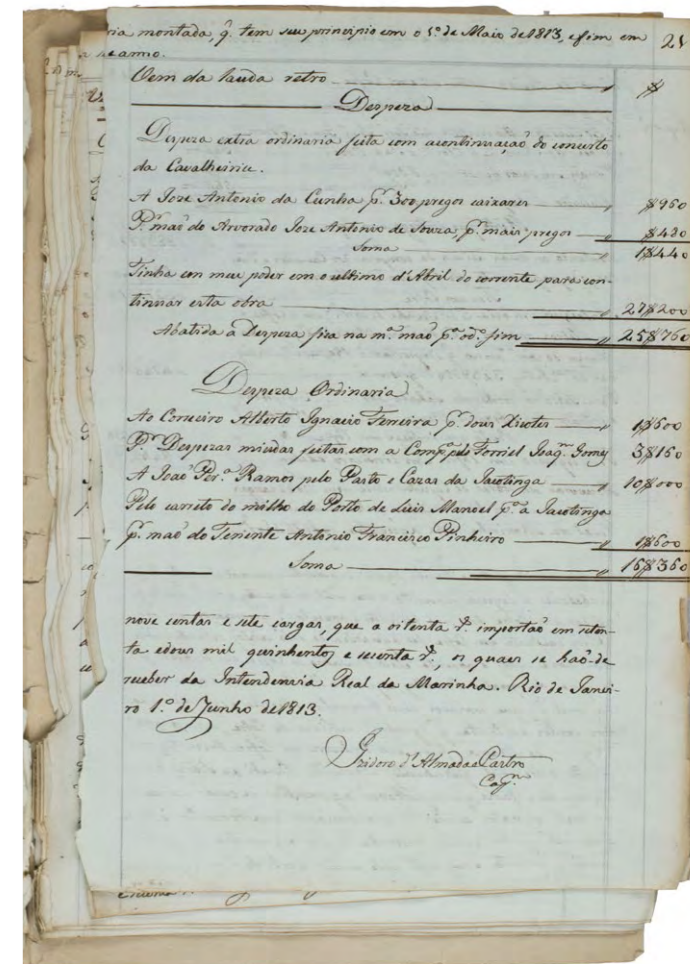 ria montada, q. tem seu principio em o 1º de Maio de 1813, efim em 21
Vem da lauda retro $
Despeza
Despeza extra ordinaria feita com acontinuaçaõ do concerto
da Cavalheirice.
A Joze Antonio da Cunha pr. 300 pregos caixares $960
Pr. maõ do Arvorado Joze Antonio de Souza, pr. mais pregos $480
Soma 1$440
Tinha em meu poder em o ultimo d'Abril do corrente para con-
tinuar esta obra 27$200
Abatida a Despeza fica na mª maõ pª odº fim 25$760
Despeza Ordinaria
Ao Corrieiro Alberto Ignacio Ferreira pr. dous Xixotes 1$600
Pr. Despezas miudas feitas com a Compª pelo Forriel Joaqm. Gomes 3$160
A Joaõ Perª Ramos pelo Pasto e Cazas da Jacotinga 10$000
Pelo carreto do milho do Porto de Luis Manoel pª a Jacotinga
pr. maõ do Tenente Antonio Francisco Pinheiro 1$600
Soma 16$360
nove centas e sete cargas, que a oitenta rs. importaõ em seten-
ta edous mil quinhentos e secenta rs., os quaes se haõ de
receber da Intendencia Real da Marinha. Rio de Janei-
ro 1º de Junho de 1813.
Izidoro d'Almada e Castro
Capm.